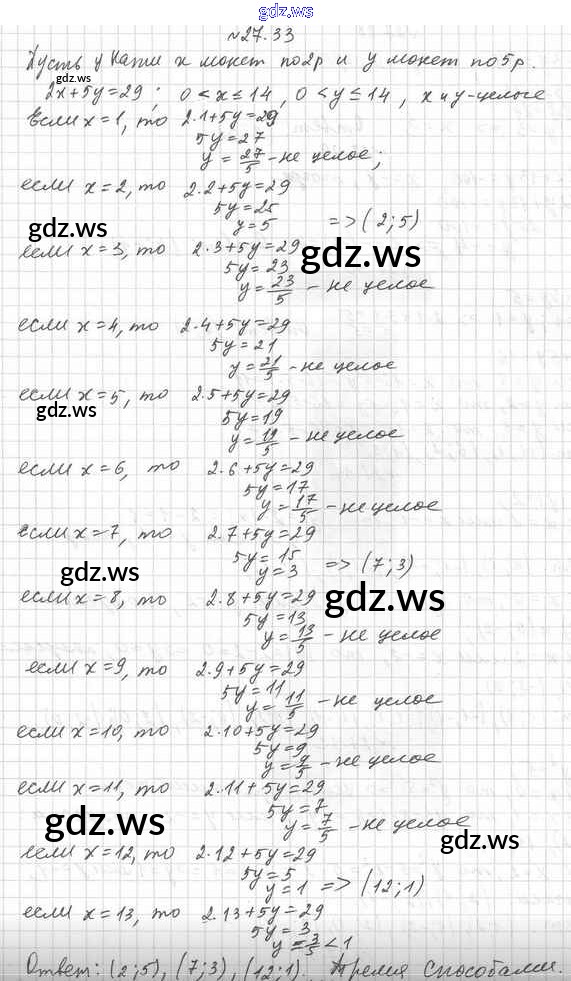 gdz.ws
№27.33
Пусть у Кати x монет по 2р и y монет по 5р.
2x+5y=29; 0<x≤14, 0<y≤14, x и y-целое
Если x=1, то 2·1+5y=29
5y=27
y=27/5 - не целое;
если x=2, то 2·2+5y=29
5y=25
gdz.ws
y=5 => (2;5)
если x=3, то 2·3+5y=29
gdz.ws
5y=23
y=23/5 - не целое
если x=4, то 2·4+5y=29
5y=21
y=21/5 - не целое
если x=5, то 2·5+5y=29
gdz.ws
5y=19
y=19/5 - не целое
если x=6, то 2·6+5y=29
5y=17
y=17/5 - не целое
если x=7, то 2·7+5y=29
5y=15
y=3 => (7;3)
gdz.ws
если x=8, то 2·8+5y=29
gdz.ws
5y=13
y=13/5 - не целое
если x=9, то 2·9+5y=29
5y=11
y=11/5 - не целое
если x=10, то 2·10+5y=29
5y=9
y=9/5 - не целое
если x=11, то 2·11+5y=29
5y=7
gdz.ws
y=7/5 - не целое
gdz.ws
если x=12, то 2·12+5y=29
5y=5
y=1 => (12;1)
если x=13, то 2·13+5y=29
5y=3
y=3/5<1
Ответ: (2;5), (7;3), (12;1). Тремя способами.